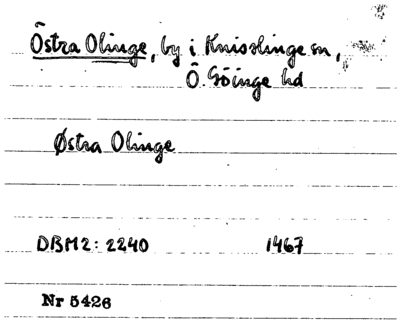 Östra Olinge, by i Knisslinge sn,
Ö. Göinge hd
Østra Olinge
DBM2: 2240 1467
Nr 5426